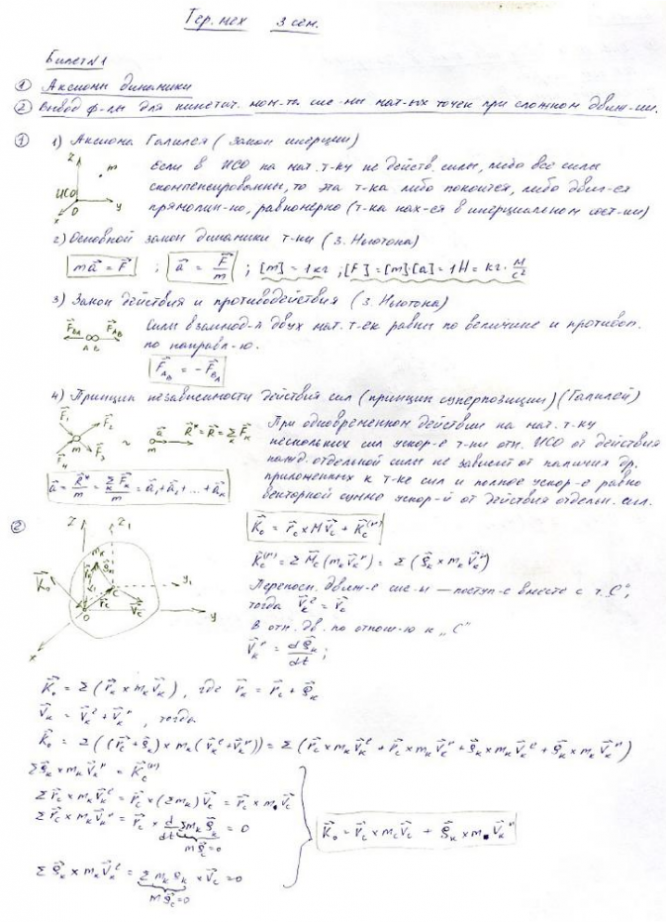 Тер. мех 3 сем.
Билет №1
① Аксиомы динамики
② Вывод ф-лы для кинетич. мом-та сис-мы мат-ых точек при сложном движ-ии.
① 1) Аксиома Галилея (Закон инерции)
Z m ИСО O x y
Если в ИСО на мат. т-ку не действ. силы, либо все силы
скомпенсированны, то эта т-ка либо покоится, либо движ-ся
прямолин-но, равномерно (т-ка нах-ся в инерциальном сост-ии)
2) Основной закон динамики т-ки (з. Ньютона)
m\vec{a} = \vec{F} ; \vec{a} = \frac{\vec{F}}{m} ; [m] = 1кг ; [F] = [m]·[a] = 1Н = кг·\frac{м}{с²}
3) Закон действия и противодействия (з. Ньютона)
\vec{F}_{BA} \vec{F}_{AB} A B
Силы взаимод-я двух мат. т-ек равны по величине и противоп.
по направл-ю.
\vec{F}_{AB} = -\vec{F}_{BA}
4) Принцип независимости действия сил (принцип суперпозиции) (Галилей)
\vec{F}_1 \vec{F}_2 \vec{F}_3 \vec{F}_4 m ~ \vec{a} m \vec{R}^* = \vec{R} = Σ\vec{F}_к
\vec{a} = \frac{\vec{R}^*}{m} = \frac{Σ\vec{F}_к}{m} = \vec{a}_1 + \vec{a}_2 + ... + \vec{a}_к
При одновременном действии на мат. т-ку
нескольких сил ускор-е т-ки отн. ИСО от действия
кажд. отдельной силы не зависит от наличия др.
приложенных к т-ке сил и полное ускор-е равно
векторной сумме ускор-й от действия отдельн. сил.
② Z Z_1 \vec{K}_0 O C y_1 y x
\vec{K}_0 = \vec{r}_c × M\vec{V}_c + \vec{K}_c^{(r)}
\vec{K}_c^{(r)} = Σ\vec{M}_c(m_к\vec{V}_к^r) = Σ(\vec{ρ}_к × m_к\vec{V}_к^r)
Переносн. движ-е сис-ы — поступ-е вместе с т. C";
тогда \vec{V}_к^e = \vec{V}_c
В отн. дв. по отнош-ю к „C"
\vec{V}_к^r = \frac{d\vec{ρ}_к}{dt} ;
\vec{K}_0 = Σ(\vec{r}_к × m_к\vec{V}_к), где \vec{r}_к = \vec{r}_c + \vec{ρ}_к
\vec{V}_к = \vec{V}_к^e + \vec{V}_к^r, тогда
\vec{K}_0 = Σ((\vec{r}_c + \vec{ρ}_к) × m_к(\vec{V}_к^e + \vec{V}_к^r)) = Σ(\vec{r}_c × m_к\vec{V}_к^e + \vec{r}_c × m_к\vec{V}_к^r + \vec{ρ}_к × m_к\vec{V}_к^e + \vec{ρ}_к × m_к\vec{V}_к^r)
Σ\vec{ρ}_к × m_к\vec{V}_к^r = \vec{K}_c^{(r)}
Σ\vec{r}_c × m_к\vec{V}_к^e = \vec{r}_c × (Σm_к)\vec{V}_c = \vec{r}_c × m\vec{V}_c
Σ\vec{r}_c × m_к\vec{V}_к^r = \vec{r}_c × \frac{d}{dt}Σm_к\vec{ρ}_к = 0
m\vec{ρ}_c = 0
\vec{K}_0 = \vec{r}_c × m_c\vec{V}_c + \vec{ρ}_к × m\vec{V}_к^r
Σ\vec{ρ}_к × m_к\vec{V}_к^e = Σm_кρ_к × \vec{V}_c = 0
m\vec{ρ}_c = 0